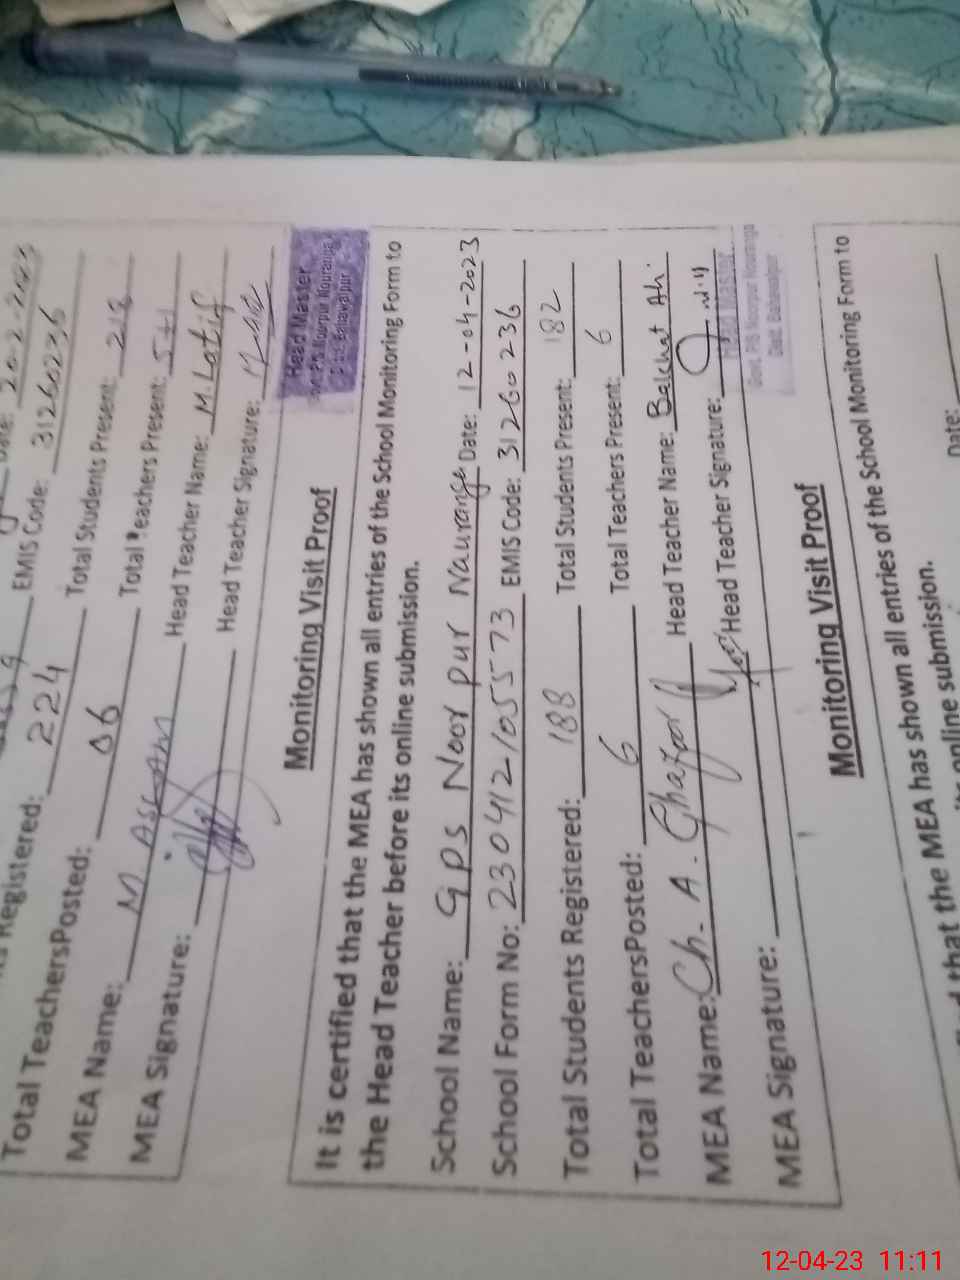 Date: 20-2-2023
Registered: 224 EMIS Code: 31260236
Total TeachersPosted: 06 Total Students Present: 218
MEA Name: M ASLAM Total Teachers Present: 5+1
MEA Signature: Head Teacher Name: M. Latif
Head Teacher Signature:
Head Master
Monitoring Visit Proof
It is certified that the MEA has shown all entries of the School Monitoring Form to
the Head Teacher before its online submission.
School Name: GPS Noor pur Nauranga Date: 12-04-2023
School Form No: 2304121055573 EMIS Code: 31260236
Total Students Registered: 188 Total Students Present: 182
Total TeachersPosted: 6 Total Teachers Present: 6
MEA Name: Ch. A. Ghafoor Head Teacher Name:
MEA Signature: Head Teacher Signature:
Monitoring Visit Proof
that the MEA has shown all entries of the School Monitoring Form to
online submission.
Date:
12-04-23 11:11